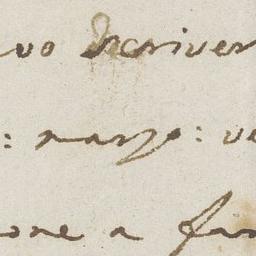 vo scriver
: marzo : v
one a fin